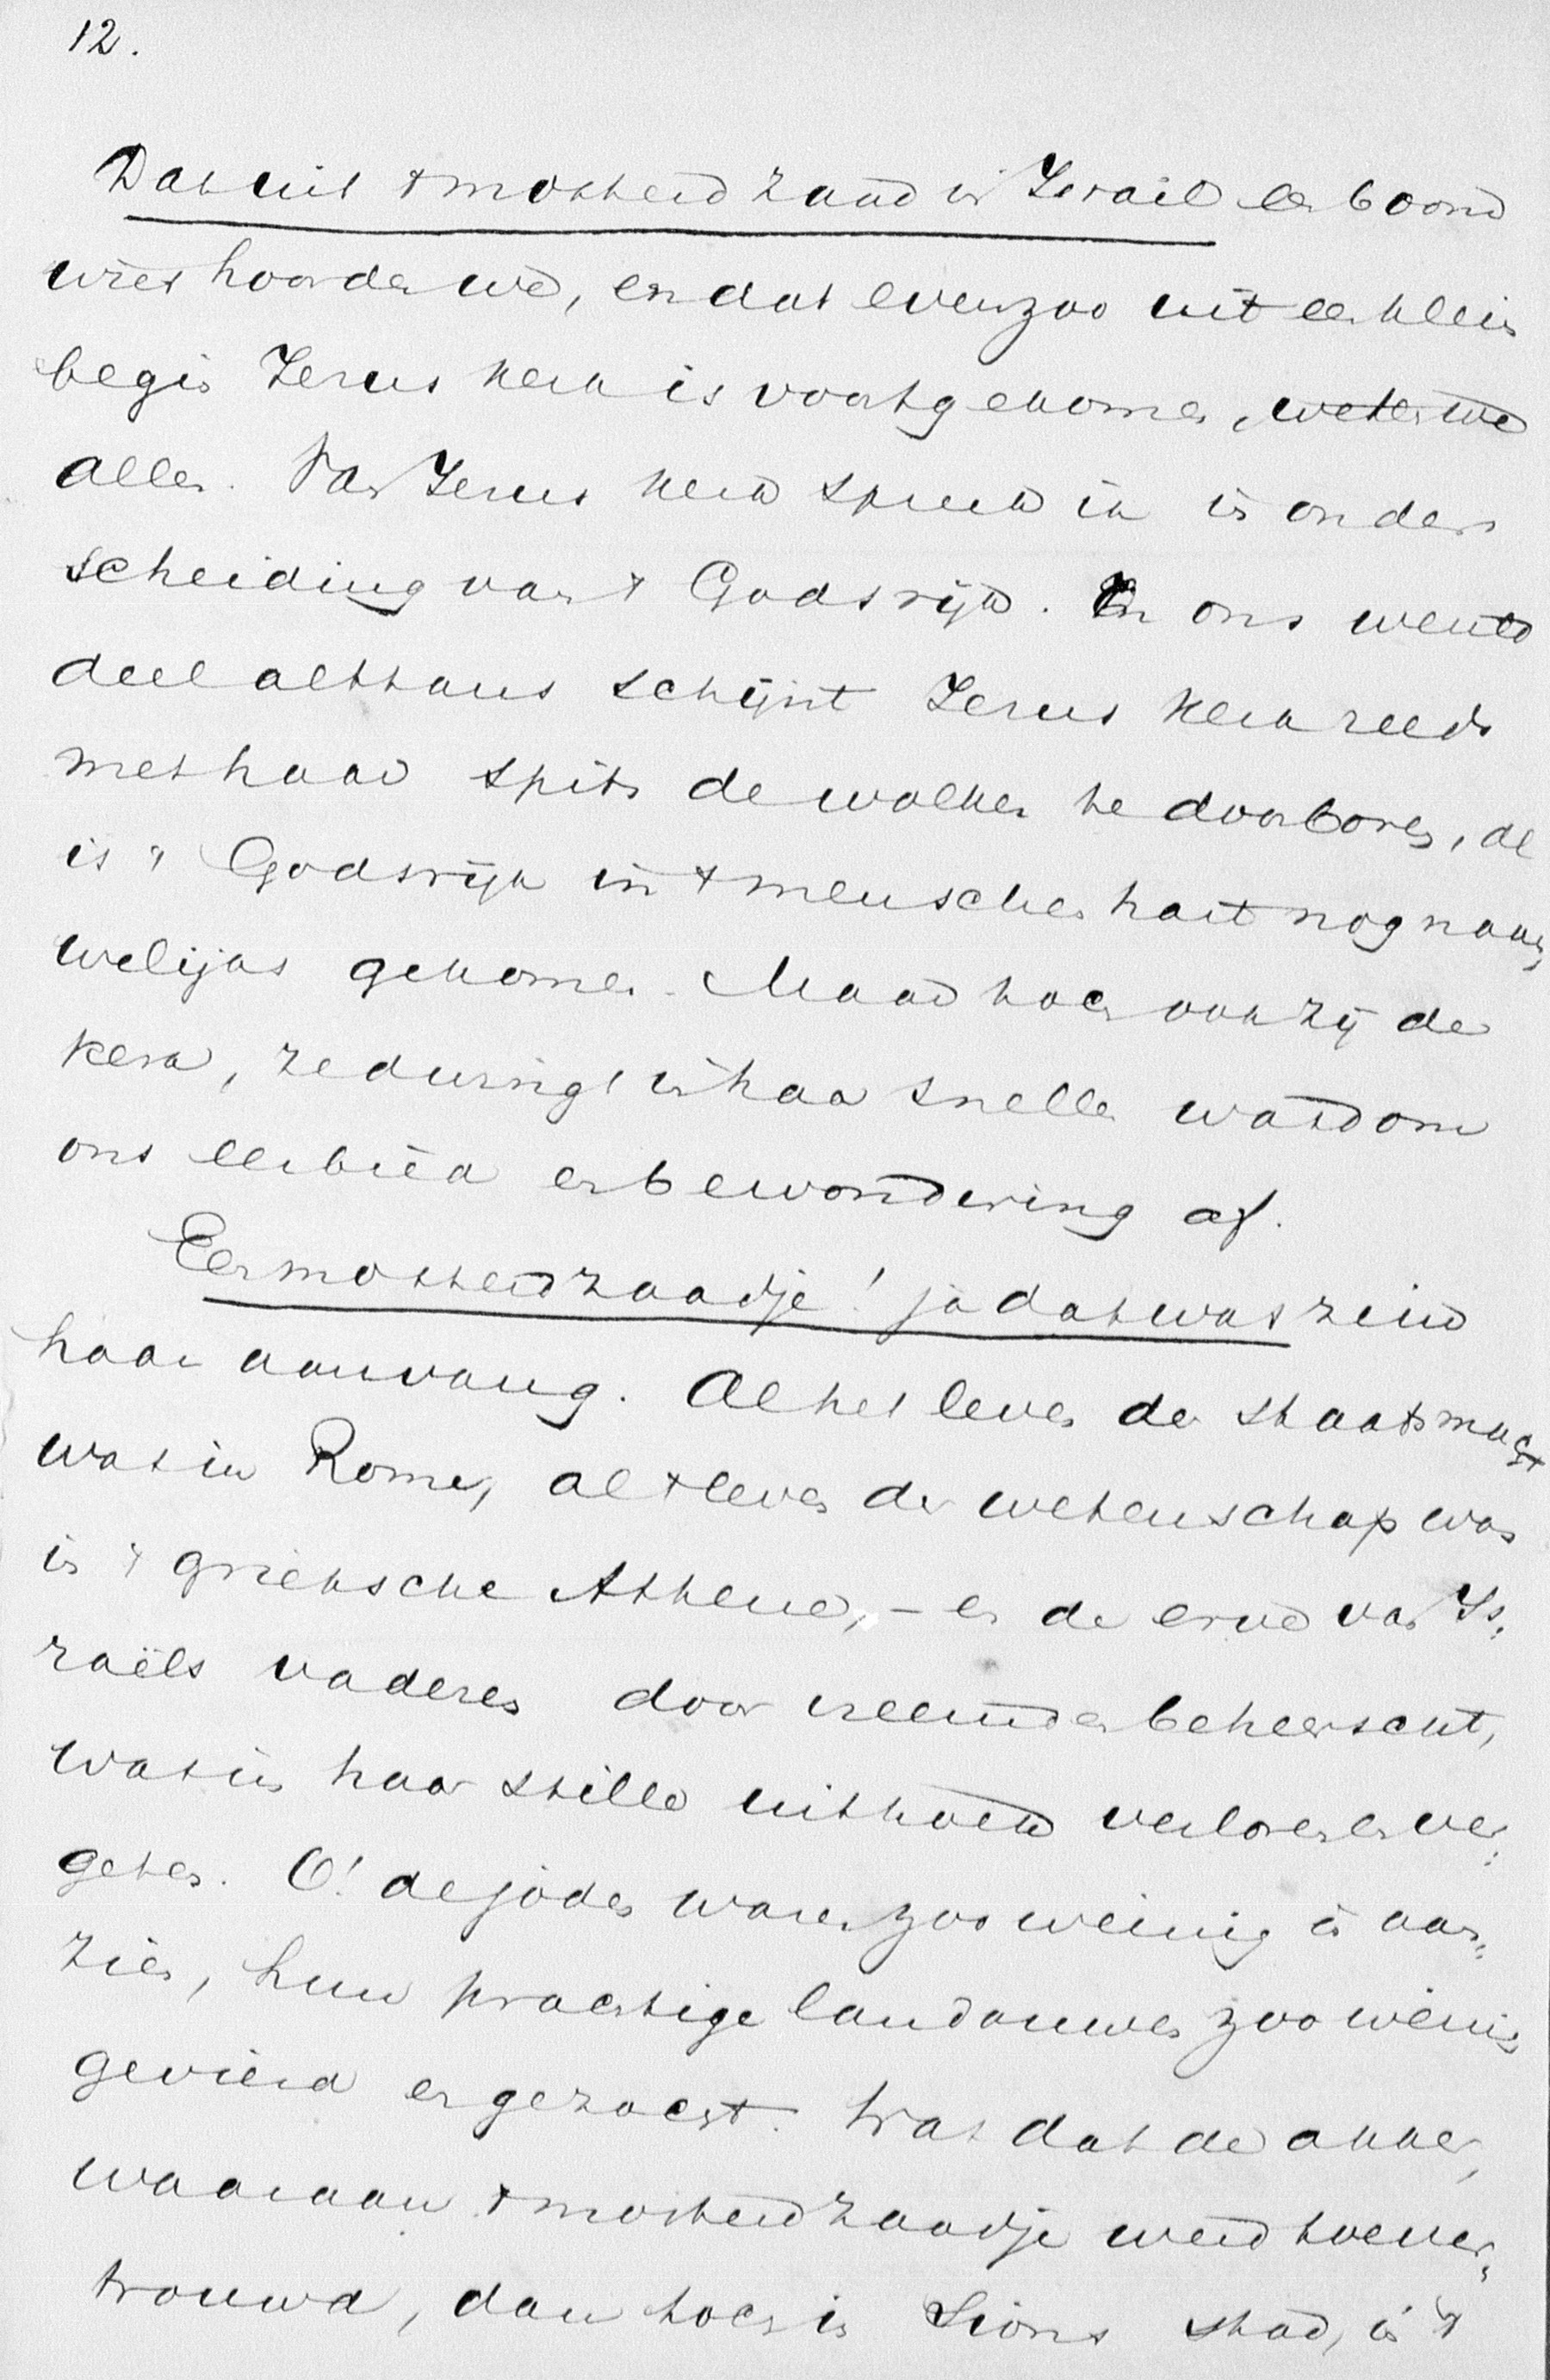 12.
Dat uit 't mosterdzaad in Israël een boom
wies hoorden we, en dat evenzoo uit een klein
begin Jezus kerk is voortgekomen, weten we
allen. Van Jezus kerk spreek ik in onder
scheiding van 't Godsrijk. In ons wereld
deel althans schijnt Jezus kerk reeds
met haar spits de wolken te doorboren, al
is 't Godsrijk in 't menschenhart nog nauw,
welijks gekomen. Maar hoe ook zij de
kerk, ze dwingt in haar snellen wasdom
ons eerbied en bewondering af.
Een mosterdzaadje! ja dat was zeker
haar aanvang. Al het leven der staatsmacht
was in Rome, al 't leven der wetenschap was
in 't grieksche Athene, – en de erve van Is,
raëls vaderen door vreemden beheerscht,
was in haar stille uithoek verloren en ver,
geten. O! de joden waren zoo weinig in aan,
zien, hun prachtige landouwen zoo weinig
gevierd en gezocht. Was dat de akker,
waaraan 't mosterdzaadje werd toever,
trouwd, dan toch in Sions stad, in 't